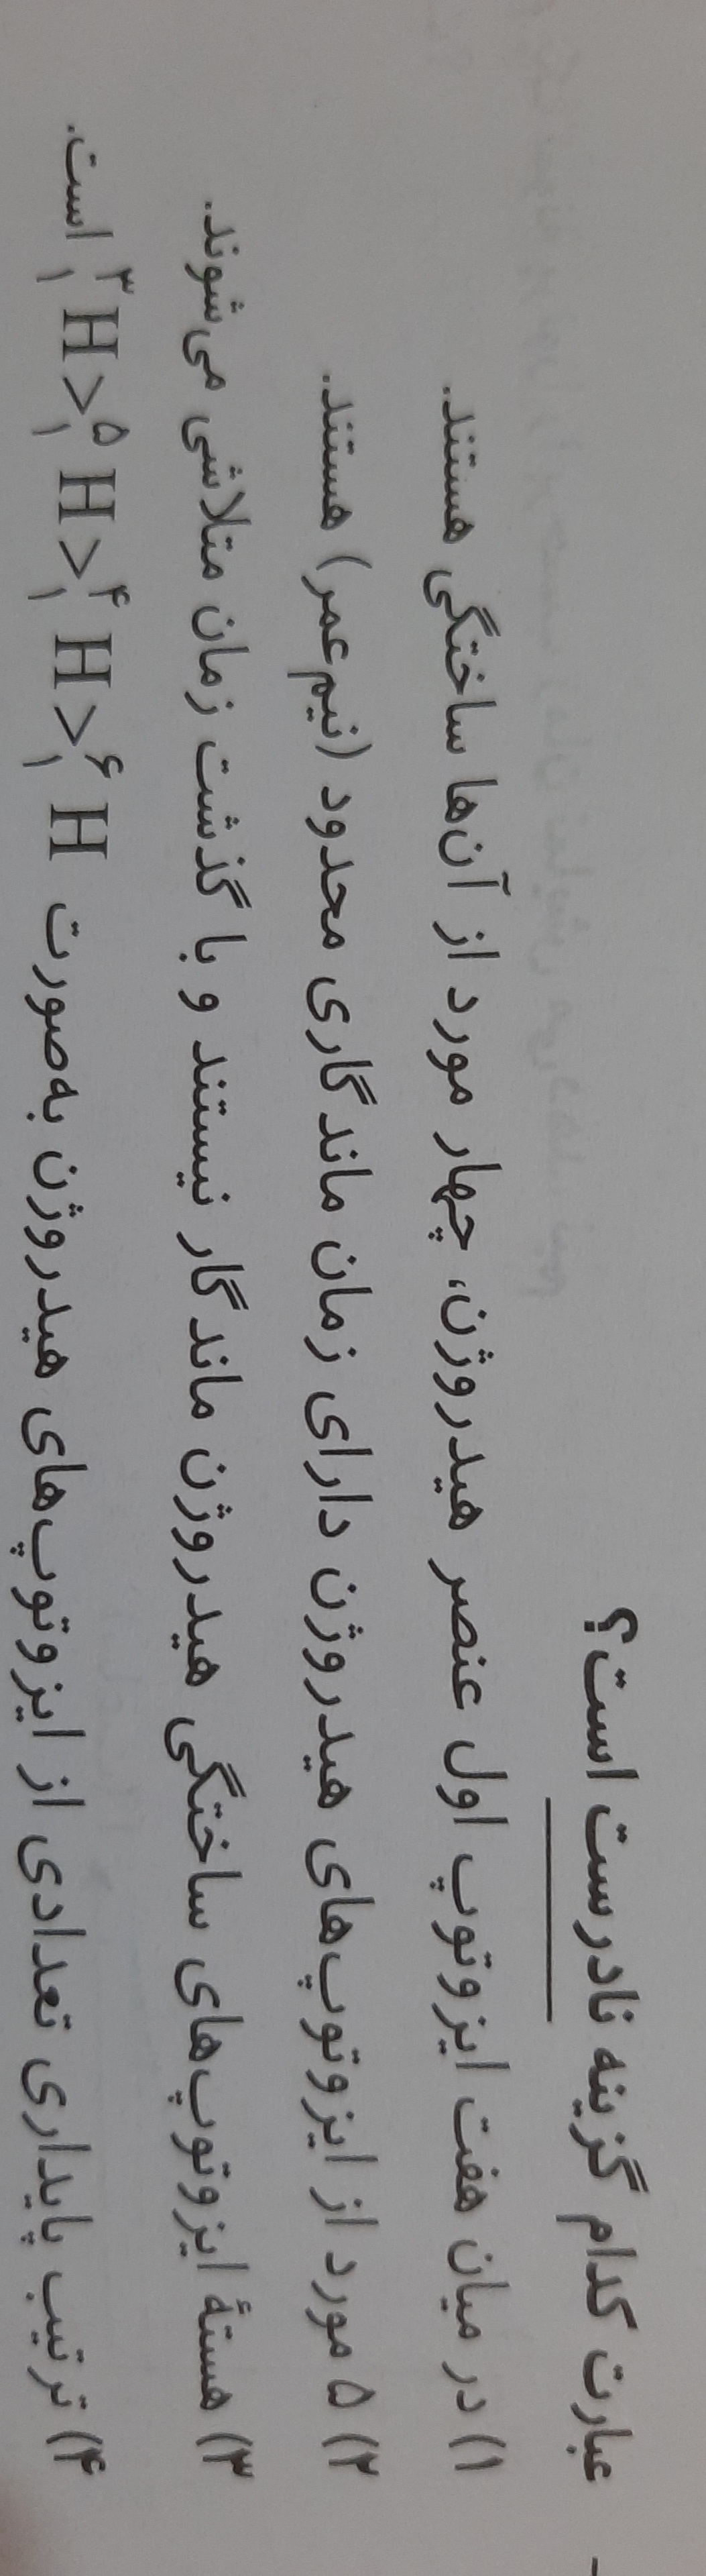 عبارت کدام گزینه نادرست است؟
۱) در میان هفت ایزوتوپ اول عنصر هیدروژن، چهار مورد از آن‌ها ساختگی هستند.
۲) ۵ مورد از ایزوتوپ‌های هیدروژن دارای زمان ماندگاری محدود (نیم‌عمر) هستند.
۳) هستهٔ ایزوتوپ‌های ساختگی هیدروژن ماندگار نیستند و با گذشت زمان متلاشی می‌شوند.
۴) ترتیب پایداری تعدادی از ایزوتوپ‌های هیدروژن به‌صورت ⁶₁H < ⁴₁H < ⁵₁H < ³₁H است.